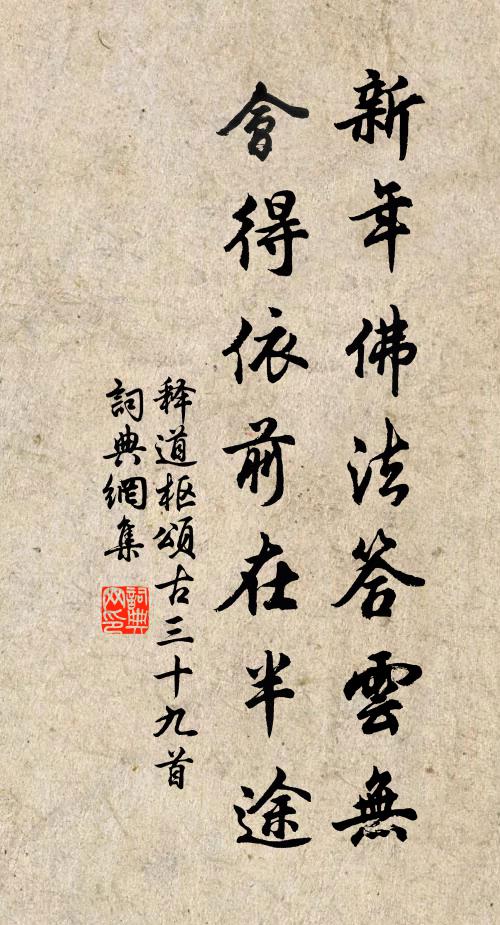 新年佛法答雲無
會得依前在半途
释道枢頌古三十九首
詞典網集
詞典网印